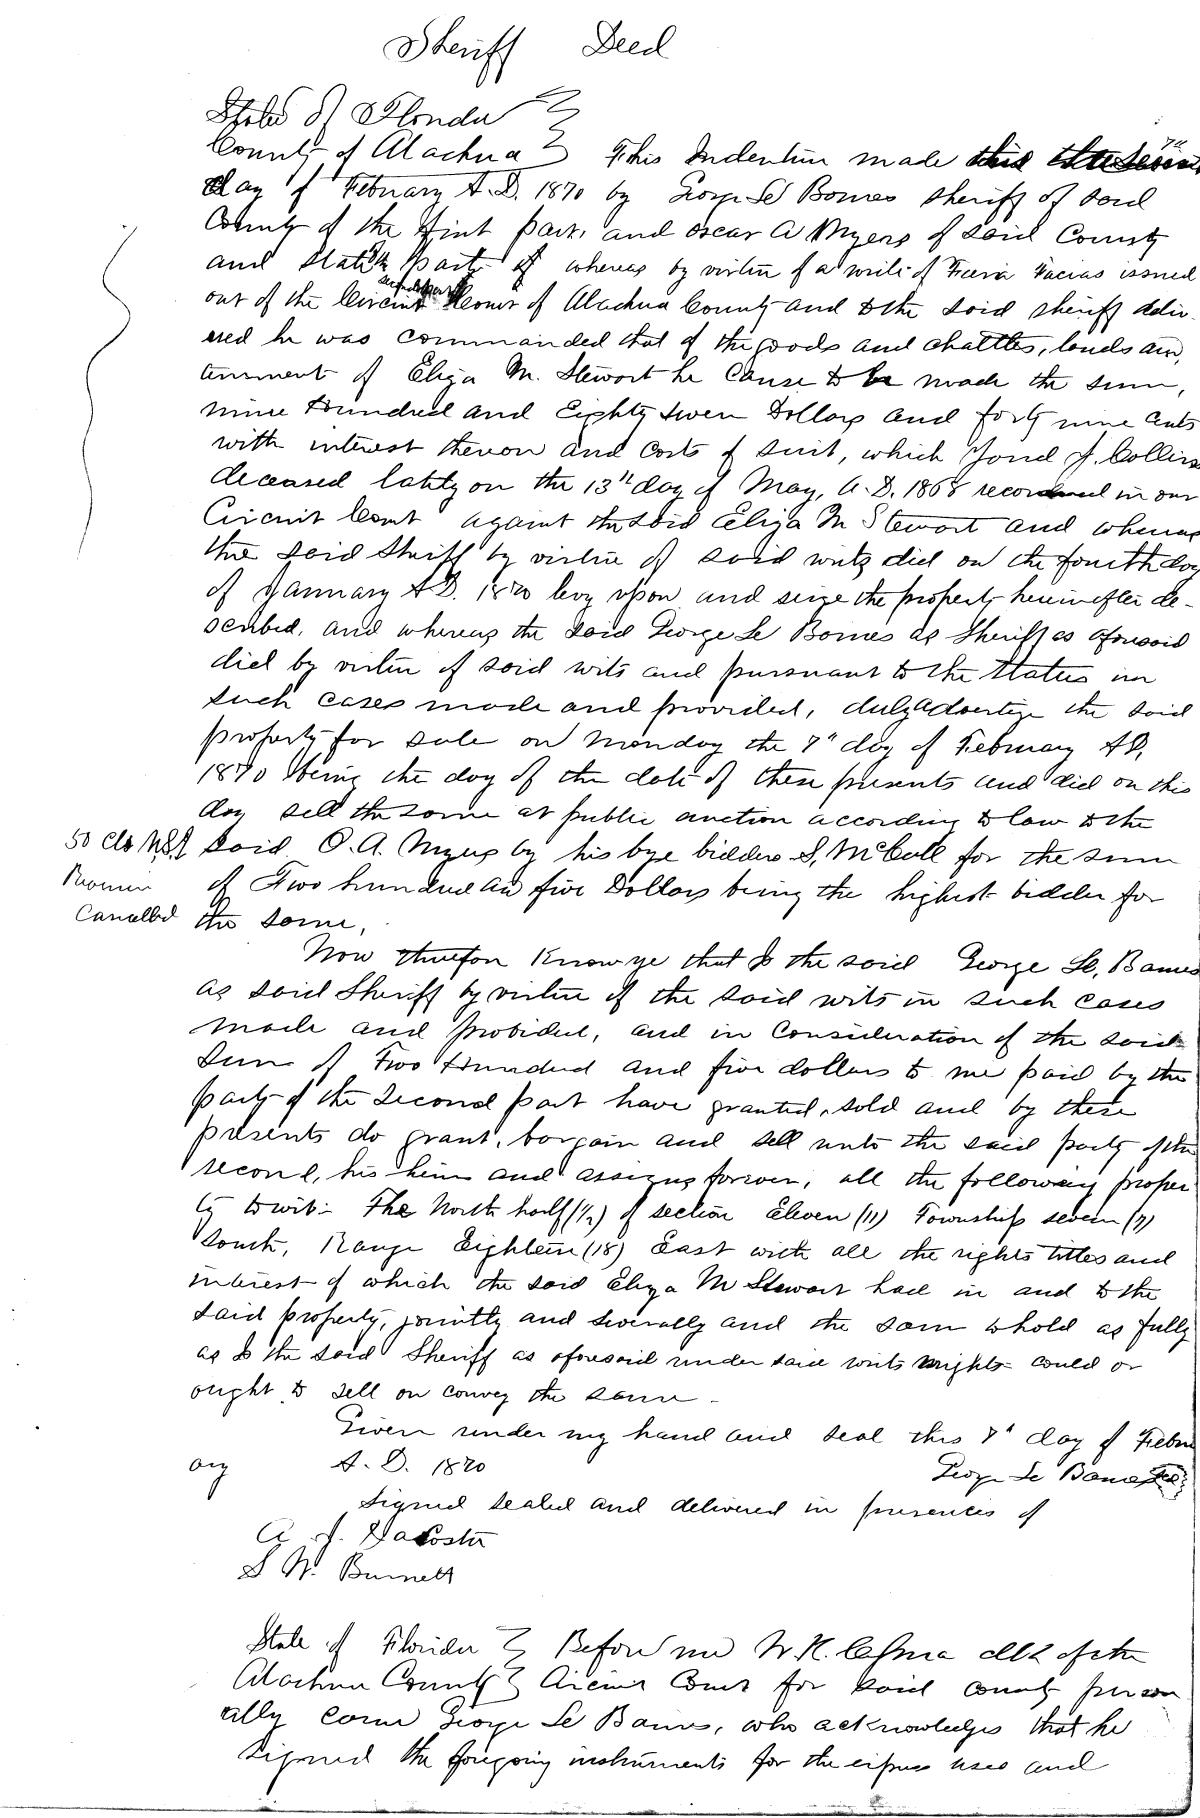 Sheriff Deed
State of Florida
County of Alachua This Indenture made this the
7th
day of February A.D. 1870 by George Le Barnes Sheriff of said
County of the first part, and Oscar A Myers of said County
and State of the party of whereas by virtue of a writ of Fiera Facias issued
second part
out of the Circuit Court of Alachua County and to the said sheriff deliv-
ered he was commanded that of the goods and chattles, lands and
tennment of Eliza M. Stewart he cause to be made the sum,
nine Hundred and Eighty seven Dollars and forty nine cents
with interest thereon and costs of suit, which J. Collins
deceased lately on the 13th day of May, A.D. 1868 recovered in our
Circuit Court against the said Eliza M Stewart and whereas
the said Sheriff by virtue of said writs did on the fourth day
of January A.D. 1870 levy upon and seize the property hereinafter de-
scribed, and whereas the said George Le Barnes as Sheriff as aforesaid
did by virtue of said wits and pursuant to the Statues in
such cases made and provided, duly advertize the said
property for sale on Monday the 7th day of February AD,
1870 being the day of the date of these presents and did on this
day sell the same at public auction according to law to the
50 Cts
said O.A. Myers by his bye bidder S, McCall for the sum
of Two hundred and five Dollars being the highest bidder for
Cancelled
the same,
Now therefore Know ye that I the said George Le, Barnes
as said Sheriff by virtue of the said wits in such cases
made and provided, and in consideration of the said
sum of Two Hundred and five dollars to me paid by the
party of the second part have granted, sold and by these
presents do grant, bargain and sell unto the said party of the
second, his heirs and assigns forever, all the following proper
ty towit:- The North half (1/2) of section Eleven (11) Township seven (7)
South, Range Eighteen (18) East with all the rights titles and
interest of which the said Eliza M Stewart had in and to the
said property, jointly and severally and the same to hold as fully
as I the said Sheriff as aforesaid under said writs might could or
ought to sell or convey the same -
Given under my hand and seal this 7th day of Febru
ary A.D. 1870
George Le Barnes
Signed sealed and delivered in presences of
A. J. DaCosta
S W. Burnett
State of Florida Before me W.K. Cessna clk of the
Alachua County Circuit Court for said county person
ally came George Le Barnes, who acknowledges that he
signed the foregoing instruments for the express uses and